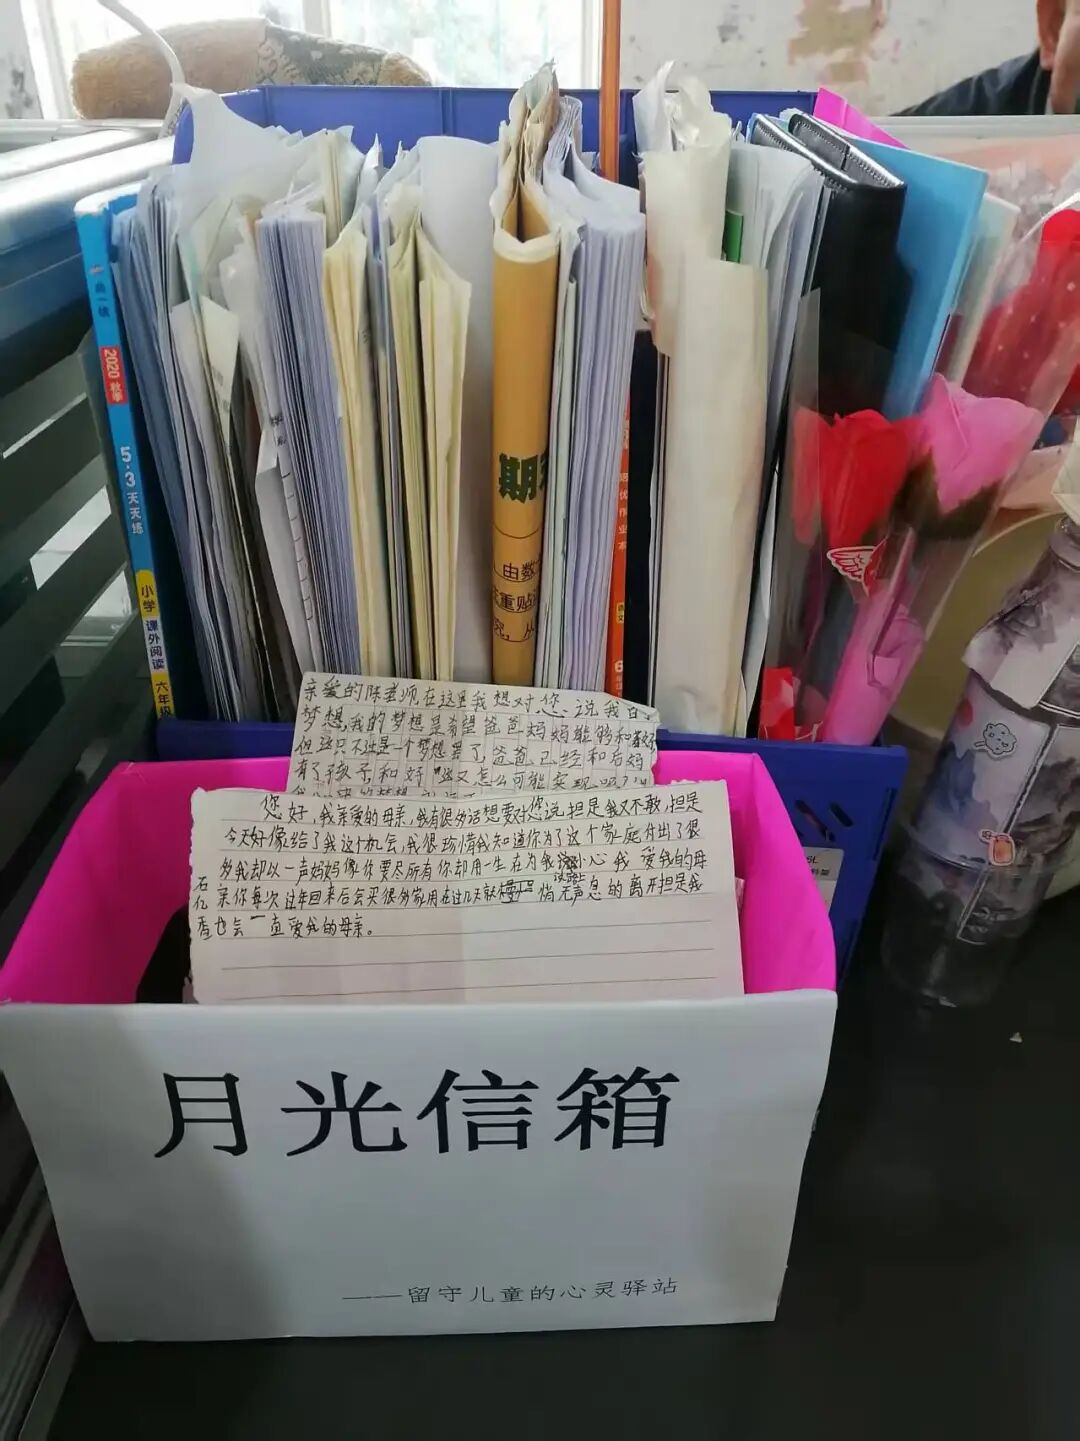 品一线
2020秋季
5·3天天练
小学
课外阅读
六年级
期末
由数
重贴
究，从
培优作业本
语文
6
亲爱的陈老师在这里我想对您、说我白
梦想,我的梦想是希望爸爸妈妈能够和
但这只不过是一个梦想罢了,爸爸已经和后妈
有了孩子,和好 又怎么可能实现
您好,我亲爱的母亲,我有很多话想要对您说,担是我又不敢,担是
今天好像给了我这个机会,我很珍惜我知道你为了这个家庭付出了很
多我却以一声妈妈像你要尽所有你却用一生在为我 小心 我 爱我的母
亲你每次过年回来后会买很多家用在过几天就 悄无声息的离开担是我
也会一直爱我的母亲。
月光信箱
——留守儿童的心灵驿站